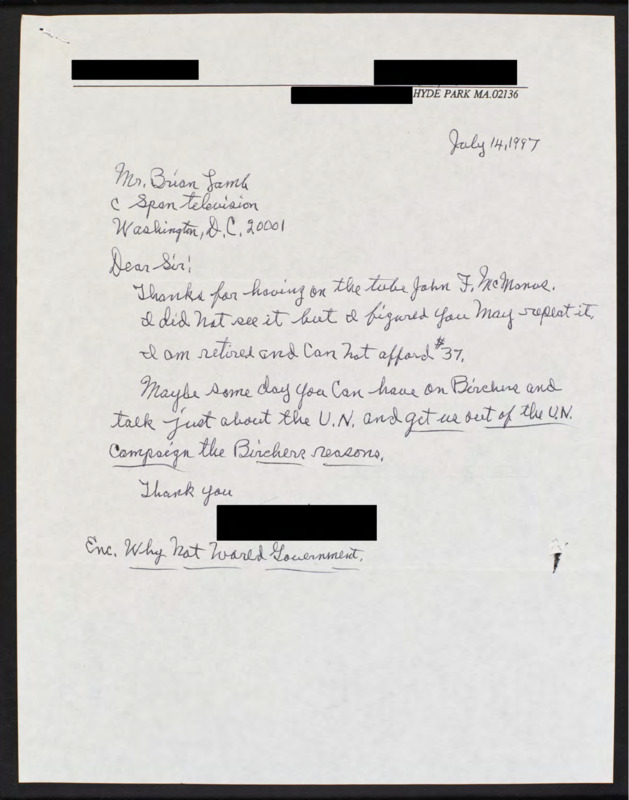 HYDE PARK MA.02136
July 14, 1997
Mr. Brian Lamb
C Span television
Washington, D.C. 20001
Dear Sir!
Thanks for having on the tube John F. McManus.
I did Not see it but I figured you May repeat it.
I am retired and Can Not afford $37.
Maybe some day you Can have on Birchers and
talk just about the U.N. and get us out of the U.N.
Campaign the Birchers reasons.
Thank you
Enc. Why Not World Government.